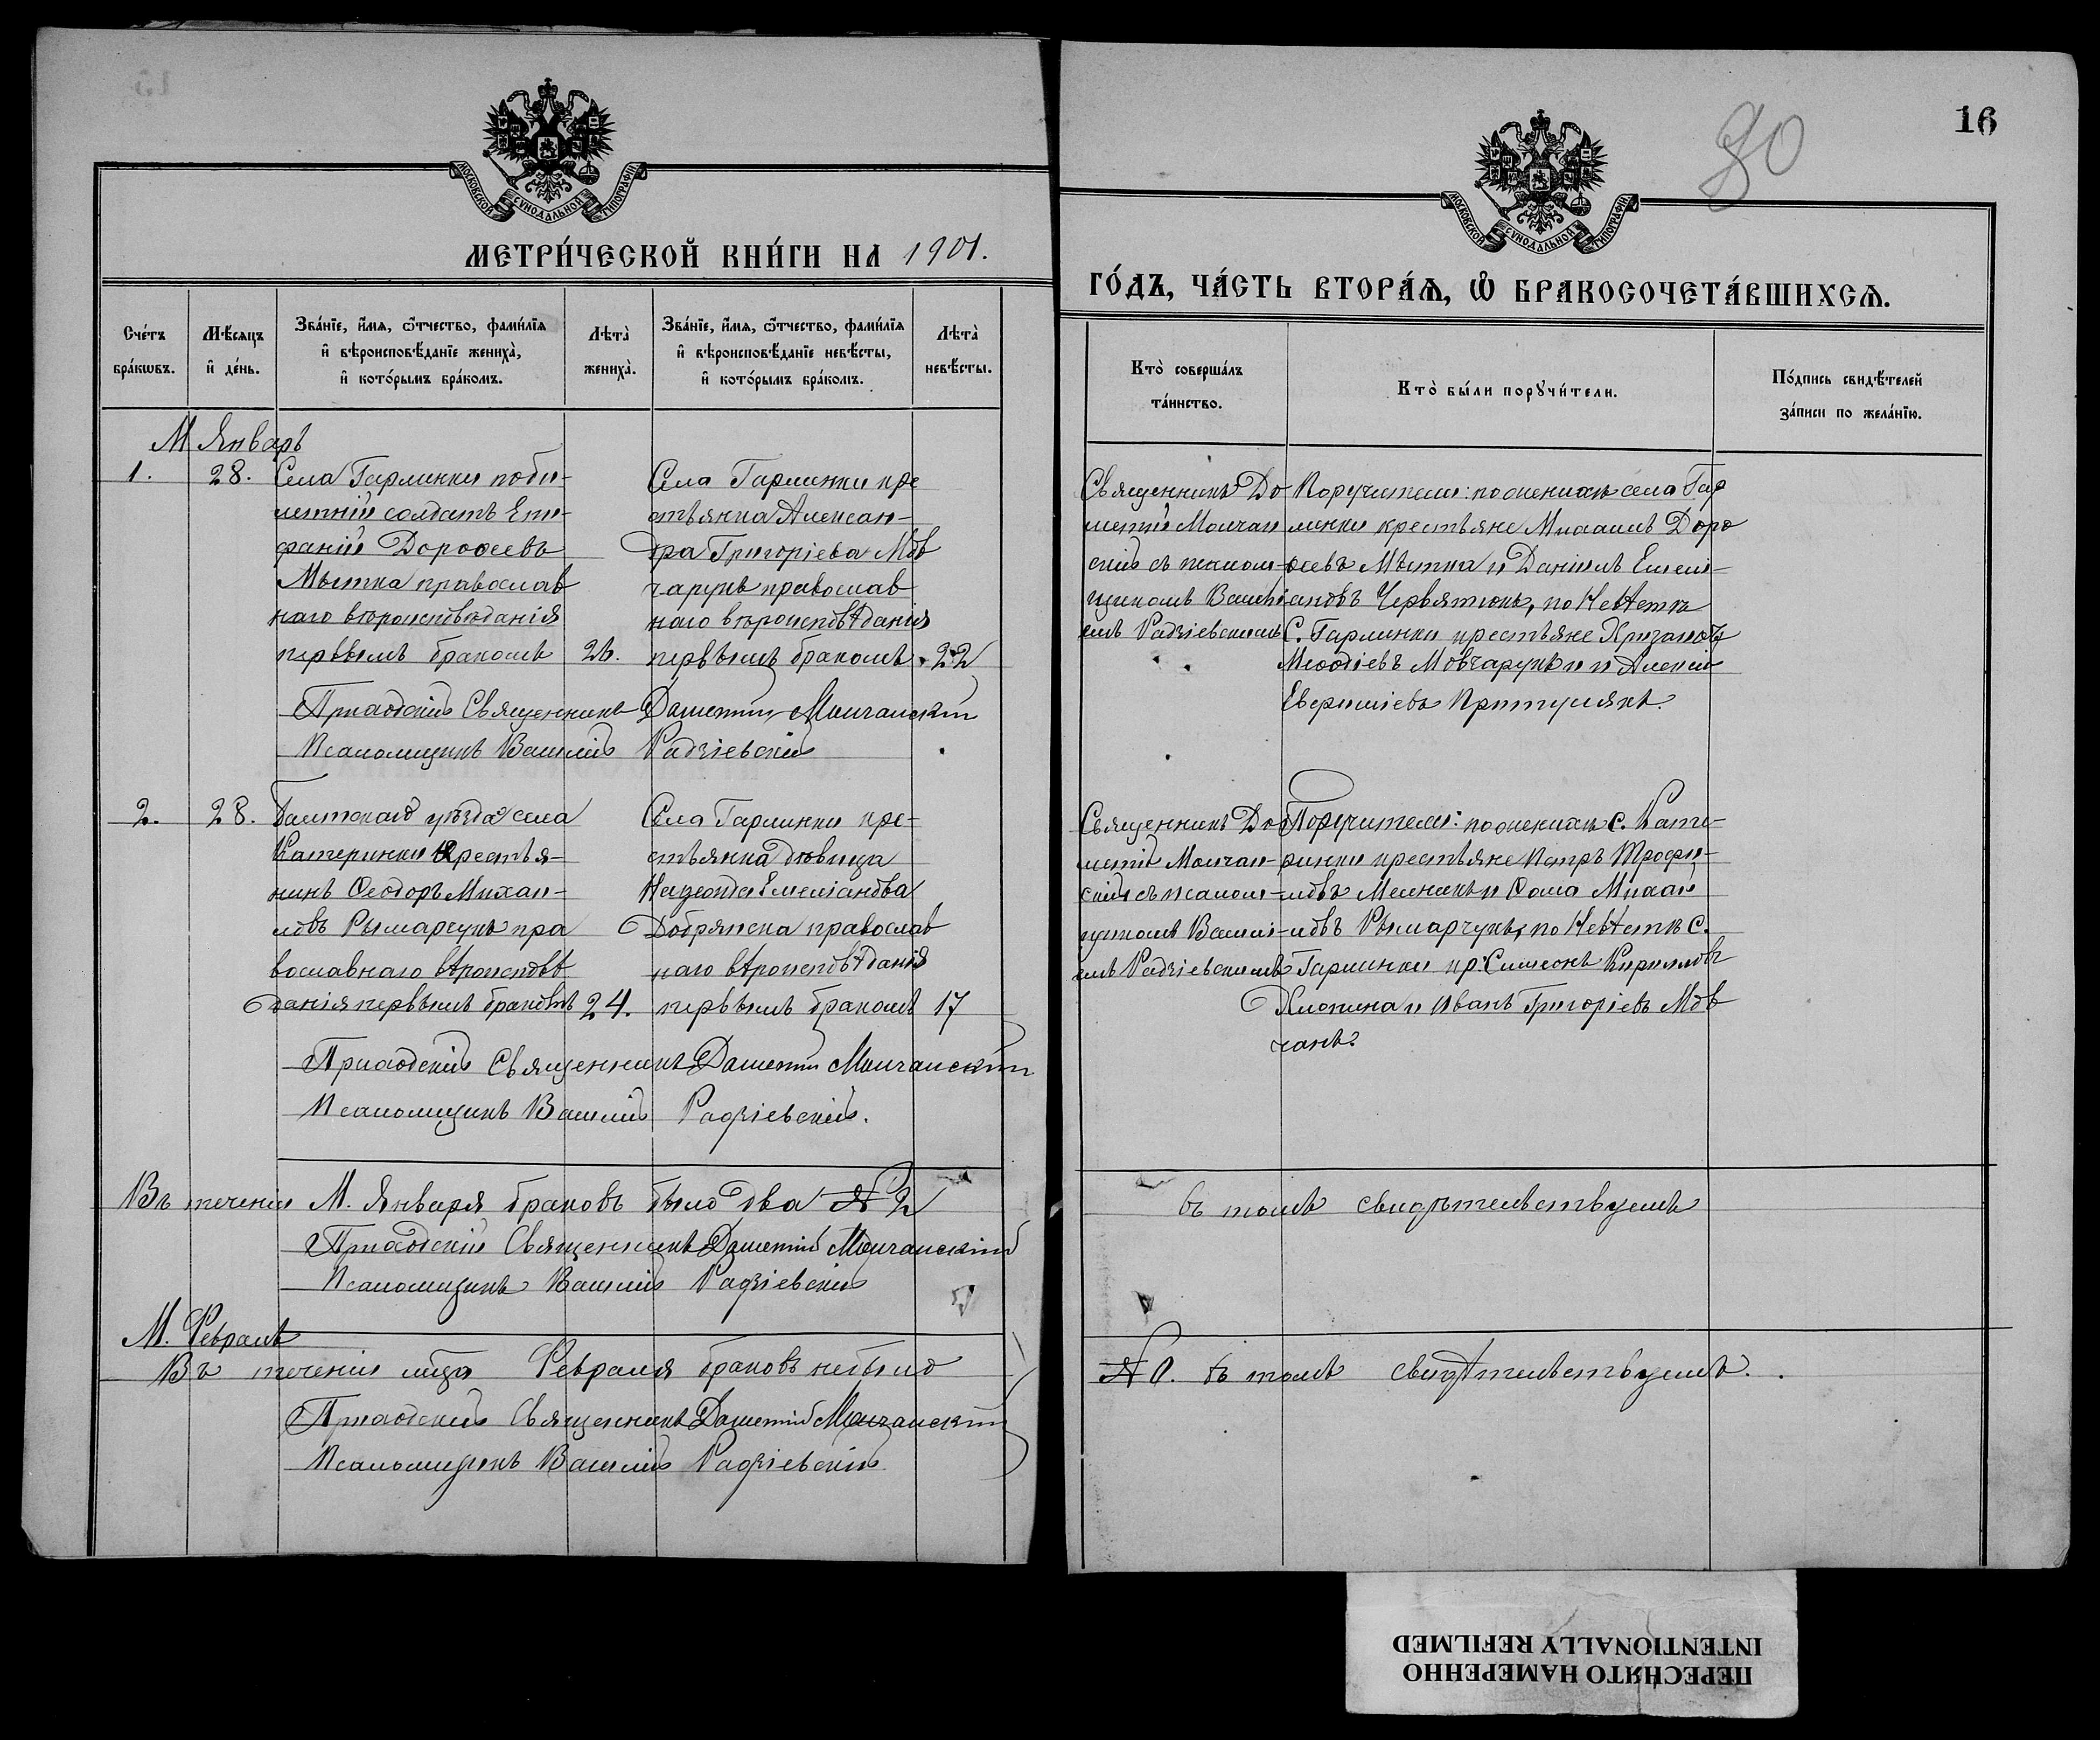 МОСКОВСКОЙ СУНОДАЛЬНОЙ ТИПОГРАФІИ
МЕТРИ́ЧЕСКОЙ КНИ́ГИ НА 1901.
Сче́тъ бра́кѡвъ.
Мѣ́сяцъ и҆ де́нь.
Зва́нїе, и҆́мѧ, ѻ҆́тчество, фами́лїѧ и҆ вѣроисповѣ́данїе жениха̀, и҆ кото́рымъ бра́комъ.
Лѣта̀ жениха̀.
Зва́нїе, и҆́мѧ, ѻ҆́тчество, фами́лїѧ и҆ вѣроисповѣ́данїе невѣ́сты, и҆ кото́рымъ бра́комъ.
Лѣта̀ невѣ́сты.
М Январь
1. 28.
Села Гармики
солдатъ Епи-
фаній Дорофеевъ
православ
наго вѣроисповѣданія
первымъ бракомъ 26.
Села кре
стьянка Алексан-
дра Григоріева Мов
чарукъ православ
наго вѣроисповѣданія
первымъ бракомъ 22
Приходскій Священникъ Молчанскій
Псаломщикъ Василій Радзіевскій
2. 28.
Балтскаго уѣзда села
Катеринки крестья-
нинъ Ѳеодоръ Михаи-
ловъ Рымарчукъ пра
вославнаго вѣроисповѣ
данія первымъ бракомъ 24.
Села кре-
стьянка дѣвица
Емеліанова
Добрянска православ
наго вѣроисповѣданія
первымъ бракомъ 17
Приходскій Священникъ Молчанскій
Псаломщикъ Василій Радзіевскій.
Въ теченіи М. Января браковъ было два № 2
Приходскій Священникъ Молчанскій
Псаломщикъ Василій Радзіевскій
М. Февраль
Въ теченіи мца Февраля браковъ небыло
Приходскій Священникъ Молчанскій
Псаломщикъ Василій Радзіевскій
80
16
МОСКОВСКОЙ СУНОДАЛЬНОЙ ТИПОГРАФІИ
ГО́ДЪ, ЧА́СТЬ ВТОРА́Ѧ, Ѡ҆ БРАКОСОЧЕТА́ВШИХСѦ.
Кто̀ соверша́лъ та́инство.
Кто̀ бы́ли порꙋчи́тели.
По́дпись свидѣ́телей за́писи по жела́нїю.
Священникъ До
метій Молчан
скій съ псалом-
щикомъ Васи
емъ Радзіевскимъ
Поручители: по женихѣ села Гар
линки крестьяне Михаилъ Доро
ѳеевъ и Даніилъ Емелі-
ановъ Червятюкъ, по Невѣстѣ
С. крестьяне
Меѳодіевъ Мовчарукъ и Алексій
Притулякъ.
Священникъ До
метій Молчан-
скій съ псалом-
щикомъ Васили-
емъ Радзіевскимъ
Поручители: по женихѣ с. Кате-
ринки крестьяне Петръ Трофи-
мовъ Мельникъ и Ѳома Михаи
ловъ Рымарчукъ, по Невѣстѣ с.
кр: Симеонъ Кирилловъ
и Иванъ Григоріевъ Мов
чанъ.
въ томъ свидѣтельствуемъ
№ 0. въ томъ свидѣтельствуемъ.
ПЕРЕСНЯТО НАМЕРЕННО
INTENTIONALLY REFILMED